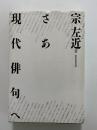 宗左近
さあ
現代俳句へ